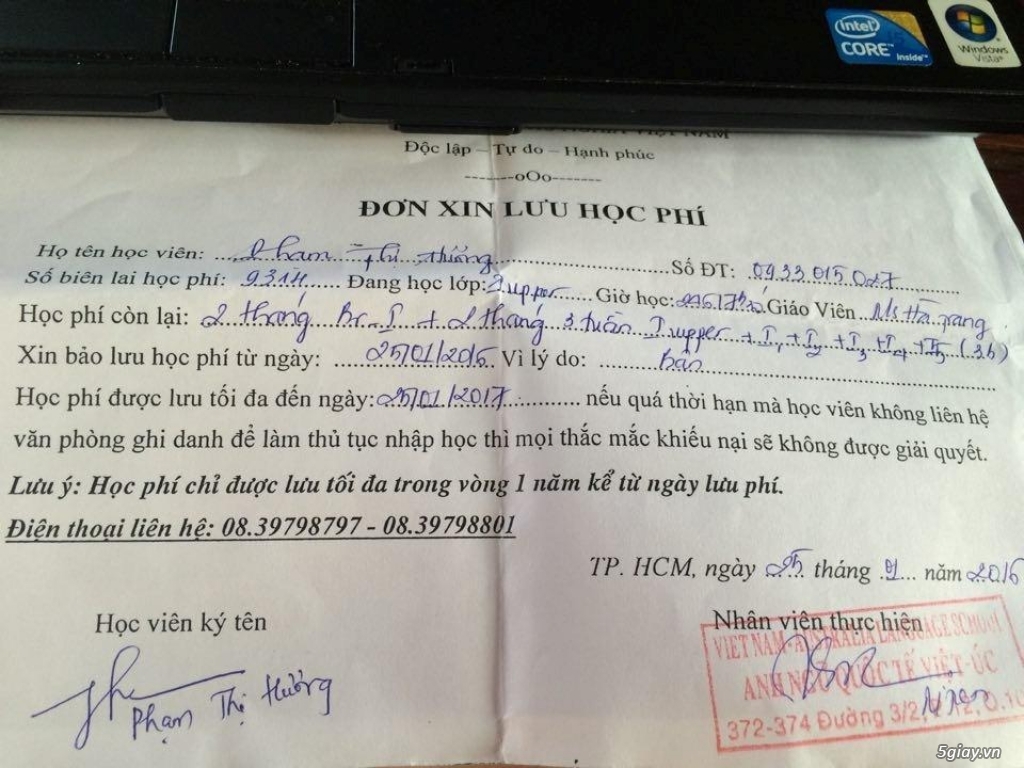 intel
CORE i5
inside
Windows Vista
NGHĨA VIỆT NAM
Độc lập – Tự do – Hạnh phúc
-------oOo-------
ĐƠN XIN LƯU HỌC PHÍ
Họ tên học viên: Phạm Thị Hưởng Số ĐT: 0933.015.027
Số biên lai học phí: 9314 Đang học lớp: Iupper Giờ học: Giáo Viên Ms Hà Trang
Học phí còn lại: 2 tháng Br I + 2 tháng 3 tuần I upper + I1 + I2 + I3 + I4 + I5 (3b)
Xin bảo lưu học phí từ ngày: 25/01/2016 Vì lý do: Bận
Học phí được lưu tối đa đến ngày: 25/01/2017 nếu quá thời hạn mà học viên không liên hệ
văn phòng ghi danh để làm thủ tục nhập học thì mọi thắc mắc khiếu nại sẽ không được giải quyết.
Lưu ý: Học phí chỉ được lưu tối đa trong vòng 1 năm kể từ ngày lưu phí.
Điện thoại liên hệ: 08.39798797 - 08.39798801
TP. HCM, ngày 25 tháng 01 năm 2016
Học viên ký tên Nhân viên thực hiện
Phạm Thị Hưởng
VIET NAM - AUSTRALIA LANGUAGE SCHOOL
ANH NGỮ QUỐC TẾ VIỆT-ÚC
372-374 Đường 3/2, P.12, Q.10
5giay.vn